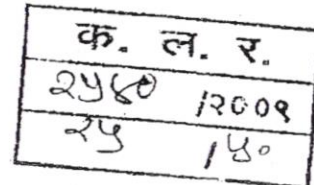 क. ल. र.
२५४० /२००९
२५ /५०